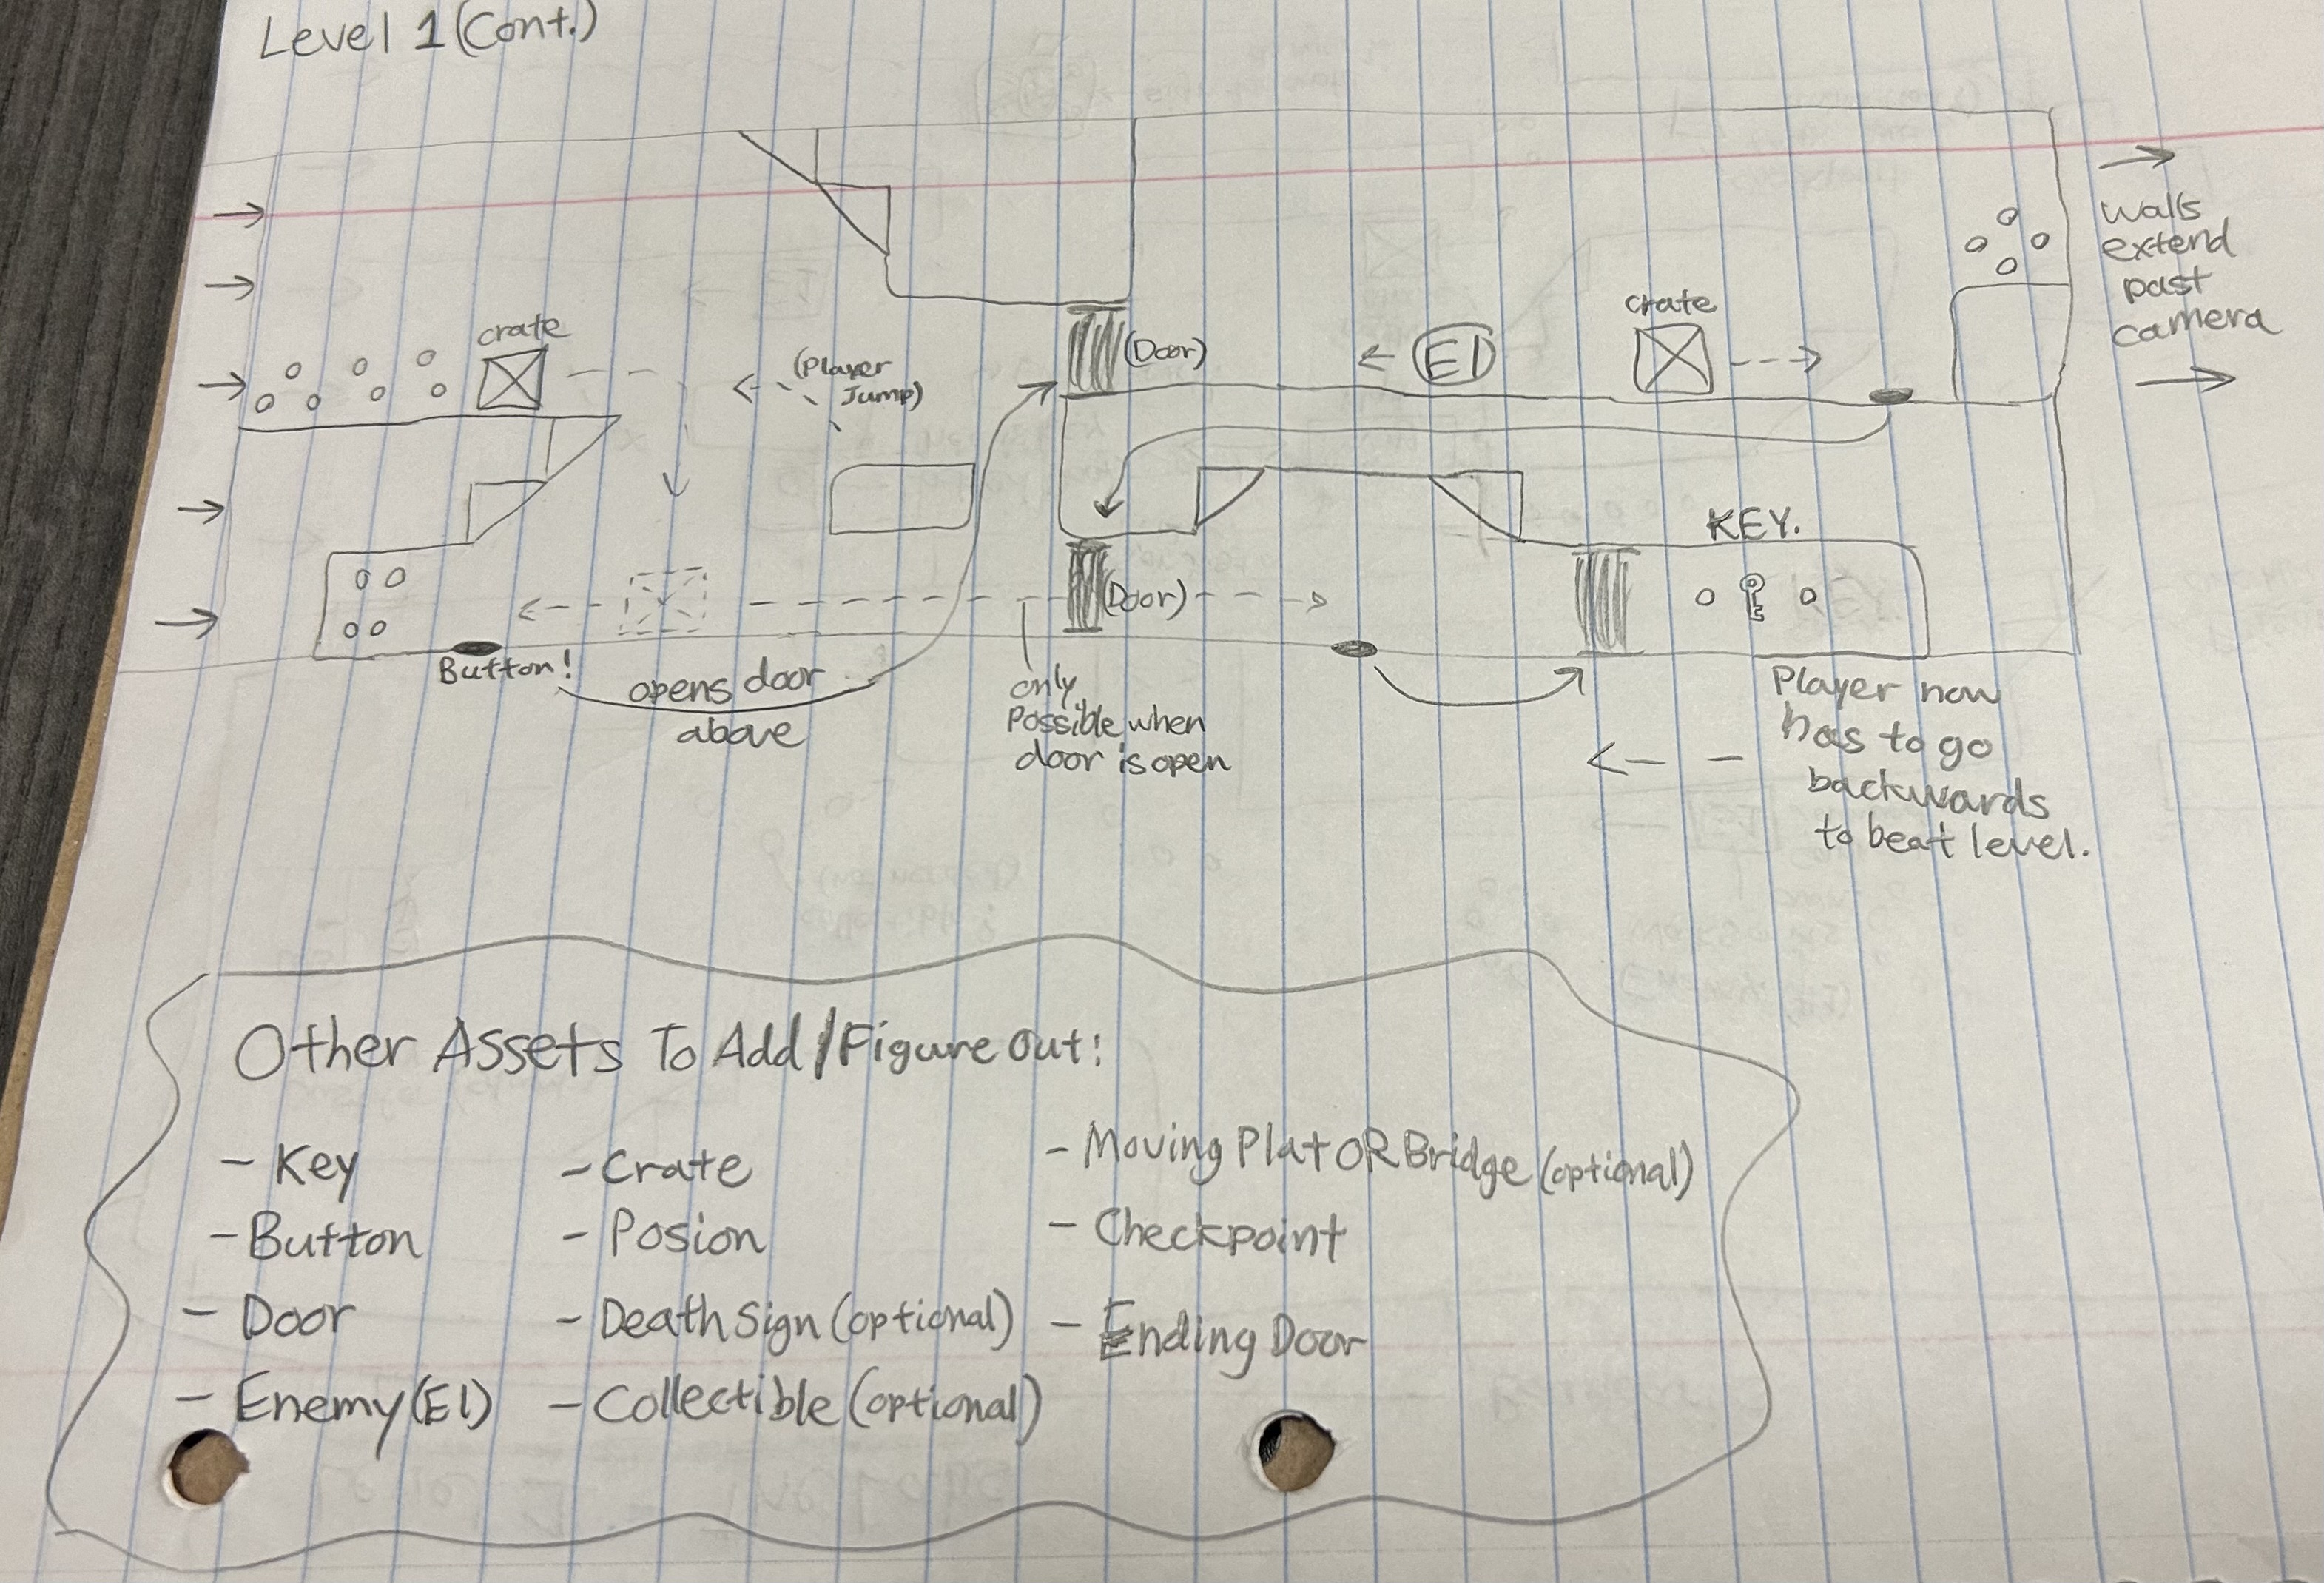 Level 1 (Cont.)
crate
(Player
Jump)
(Door)
E1
crate
walls
extend
past
camera
KEY.
(Door)
Button!
opens door
above
only
possible when
door is open
Player now
has to go
backwards
to beat level.
Other Assets To Add/Figure Out:
- Key
- Button
- Door
- Enemy (E1)
- Crate
- Posion
- Death Sign (optional)
- Collectible (optional)
- Moving Plat OR Bridge (optional)
- Checkpoint
- Ending Door